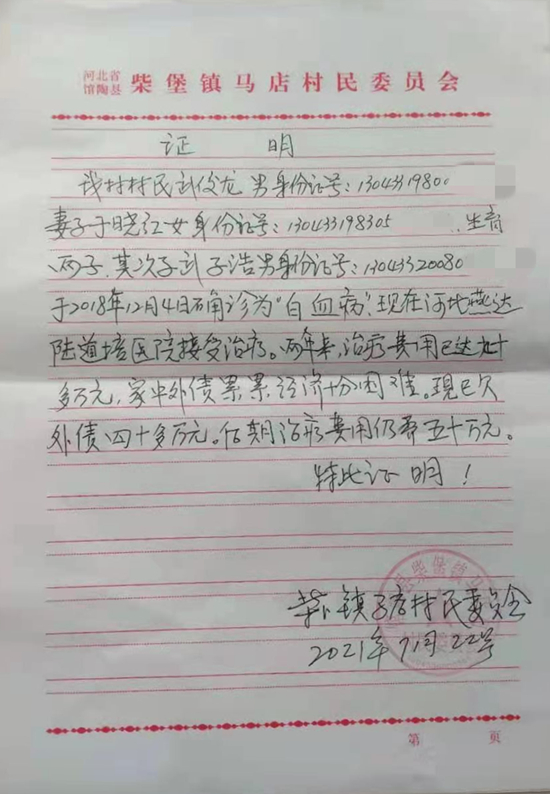 河北省
馆陶县 柴堡镇马店村民委员会
证 明
我村村民武俊龙 男身份证号:1304331980
妻子于晓红女身份证号:130433198305 生育
两子.其次子武子浩男身份证号:13043320080
于2018年12月4日确诊为“白血病”.现在河北燕达
陆道培医院接受治疗。两年来,治疗费用已达
多万元,家中外债累累经济十分困难。现已欠
外债四十多万元。后期治疗费用仍需五十万元。
特此证明!
镇马店村民委员会
2021年 月22号
第 页